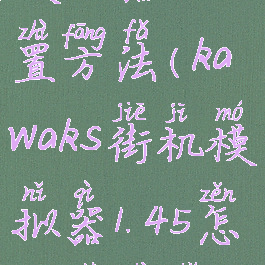 zhì fāng fǎ
置方法(ka
jiē jī mó
waks街机模
nǐ qì zěn
拟器1.45怎